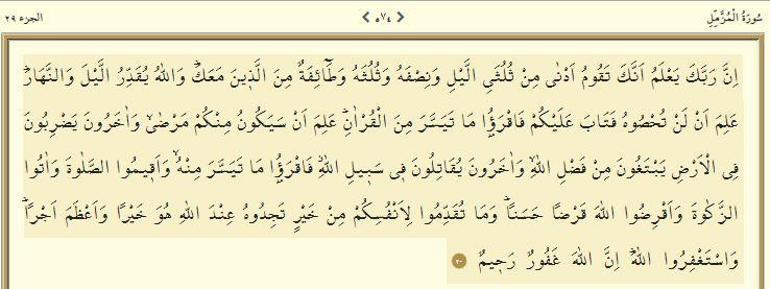 سُورَةُ الْمُزَّمِّلِ ٥٧٤ الجزء ٢٩
اِنَّ رَبَّكَ يَعْلَمُ اَنَّكَ تَقُومُ اَدْنٰى مِنْ ثُلُثَيِ الَّيْلِ وَنِصْفَهُ وَثُلُثَهُ وَطَٓائِفَةٌ مِنَ الَّذٖينَ مَعَكَۜ وَاللّٰهُ يُقَدِّرُ الَّيْلَ وَالنَّهَارَۜ
عَلِمَ اَنْ لَنْ تُحْصُوهُ فَتَابَ عَلَيْكُمْ فَاقْرَؤُ۫ا مَا تَيَسَّرَ مِنَ الْقُرْاٰنِۜ عَلِمَ اَنْ سَيَكُونُ مِنْكُمْ مَرْضٰىۙ وَاٰخَرُونَ يَضْرِبُونَ
فِي الْاَرْضِ يَبْتَغُونَ مِنْ فَضْلِ اللّٰهِۙ وَاٰخَرُونَ يُقَاتِلُونَ فٖي سَبٖيلِ اللّٰهِۘ فَاقْرَؤُ۫ا مَا تَيَسَّرَ مِنْهُۙ وَاَقٖيمُوا الصَّلٰوةَ وَاٰتُوا
الزَّكٰوةَ وَاَقْرِضُوا اللّٰهَ قَرْضًا حَسَنًاۜ وَمَا تُقَدِّمُوا لِاَنْفُسِكُمْ مِنْ خَيْرٍ تَجِدُوهُ عِنْدَ اللّٰهِ هُوَ خَيْرًا وَاَعْظَمَ اَجْرًاۜ
وَاسْتَغْفِرُوا اللّٰهَۜ اِنَّ اللّٰهَ غَفُورٌ رَحٖيمٌ ٢٠